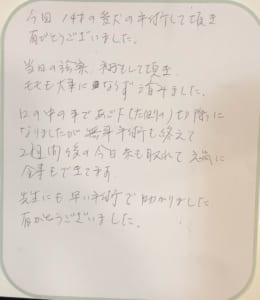 今回 14才の愛犬の手術して頂き
有がとうございました。
当日の診察、
も大事に ならず 済みました。
口の中の手であご下 切除に
なりましたが 無事手術も終えて
2週間後の今日 糸も取れて 元気に
食事もできてます。
先生にも 早い手術で助かりました
有がとうございました。